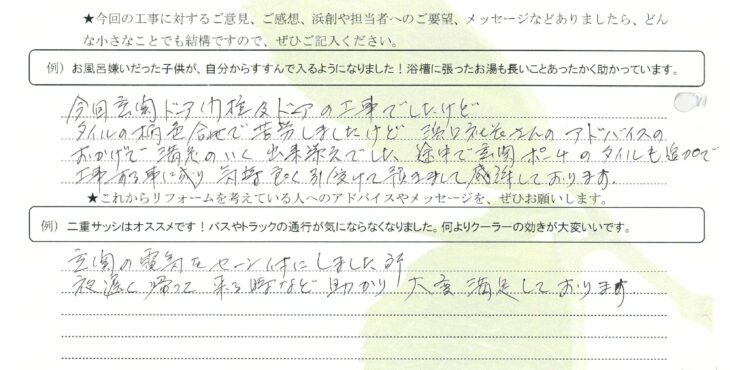 ★今回の工事に対するご意見、ご感想、浜創や担当者へのご要望、メッセージなどありましたら、どん
な小さなことでも結構ですので、ぜひご記入ください。
例）お風呂嫌いだった子供が、自分からすすんで入るようになりました！浴槽に張ったお湯も長いことあったかく助かっています。
今回玄関ドア巾拡及ドアの工事でしたけど
タイルの柄色合せで苦労しましたけど さんのアドバイスの
おかげで満足のいく出来栄えでした 途中で玄関ポーチのタイルも追加で
工事する事に成り 気持良く引受けて頂きまして感謝しております。
★これからリフォームを考えている人へのアドバイスやメッセージを、ぜひお願いします。
例）二重サッシはオススメです！バスやトラックの通行が気にならなくなりました。何よりクーラーの効きが大変いいです。
玄関の電気をセンサー付にしました所
夜遅く帰って来る時など助かり 大変満足しております